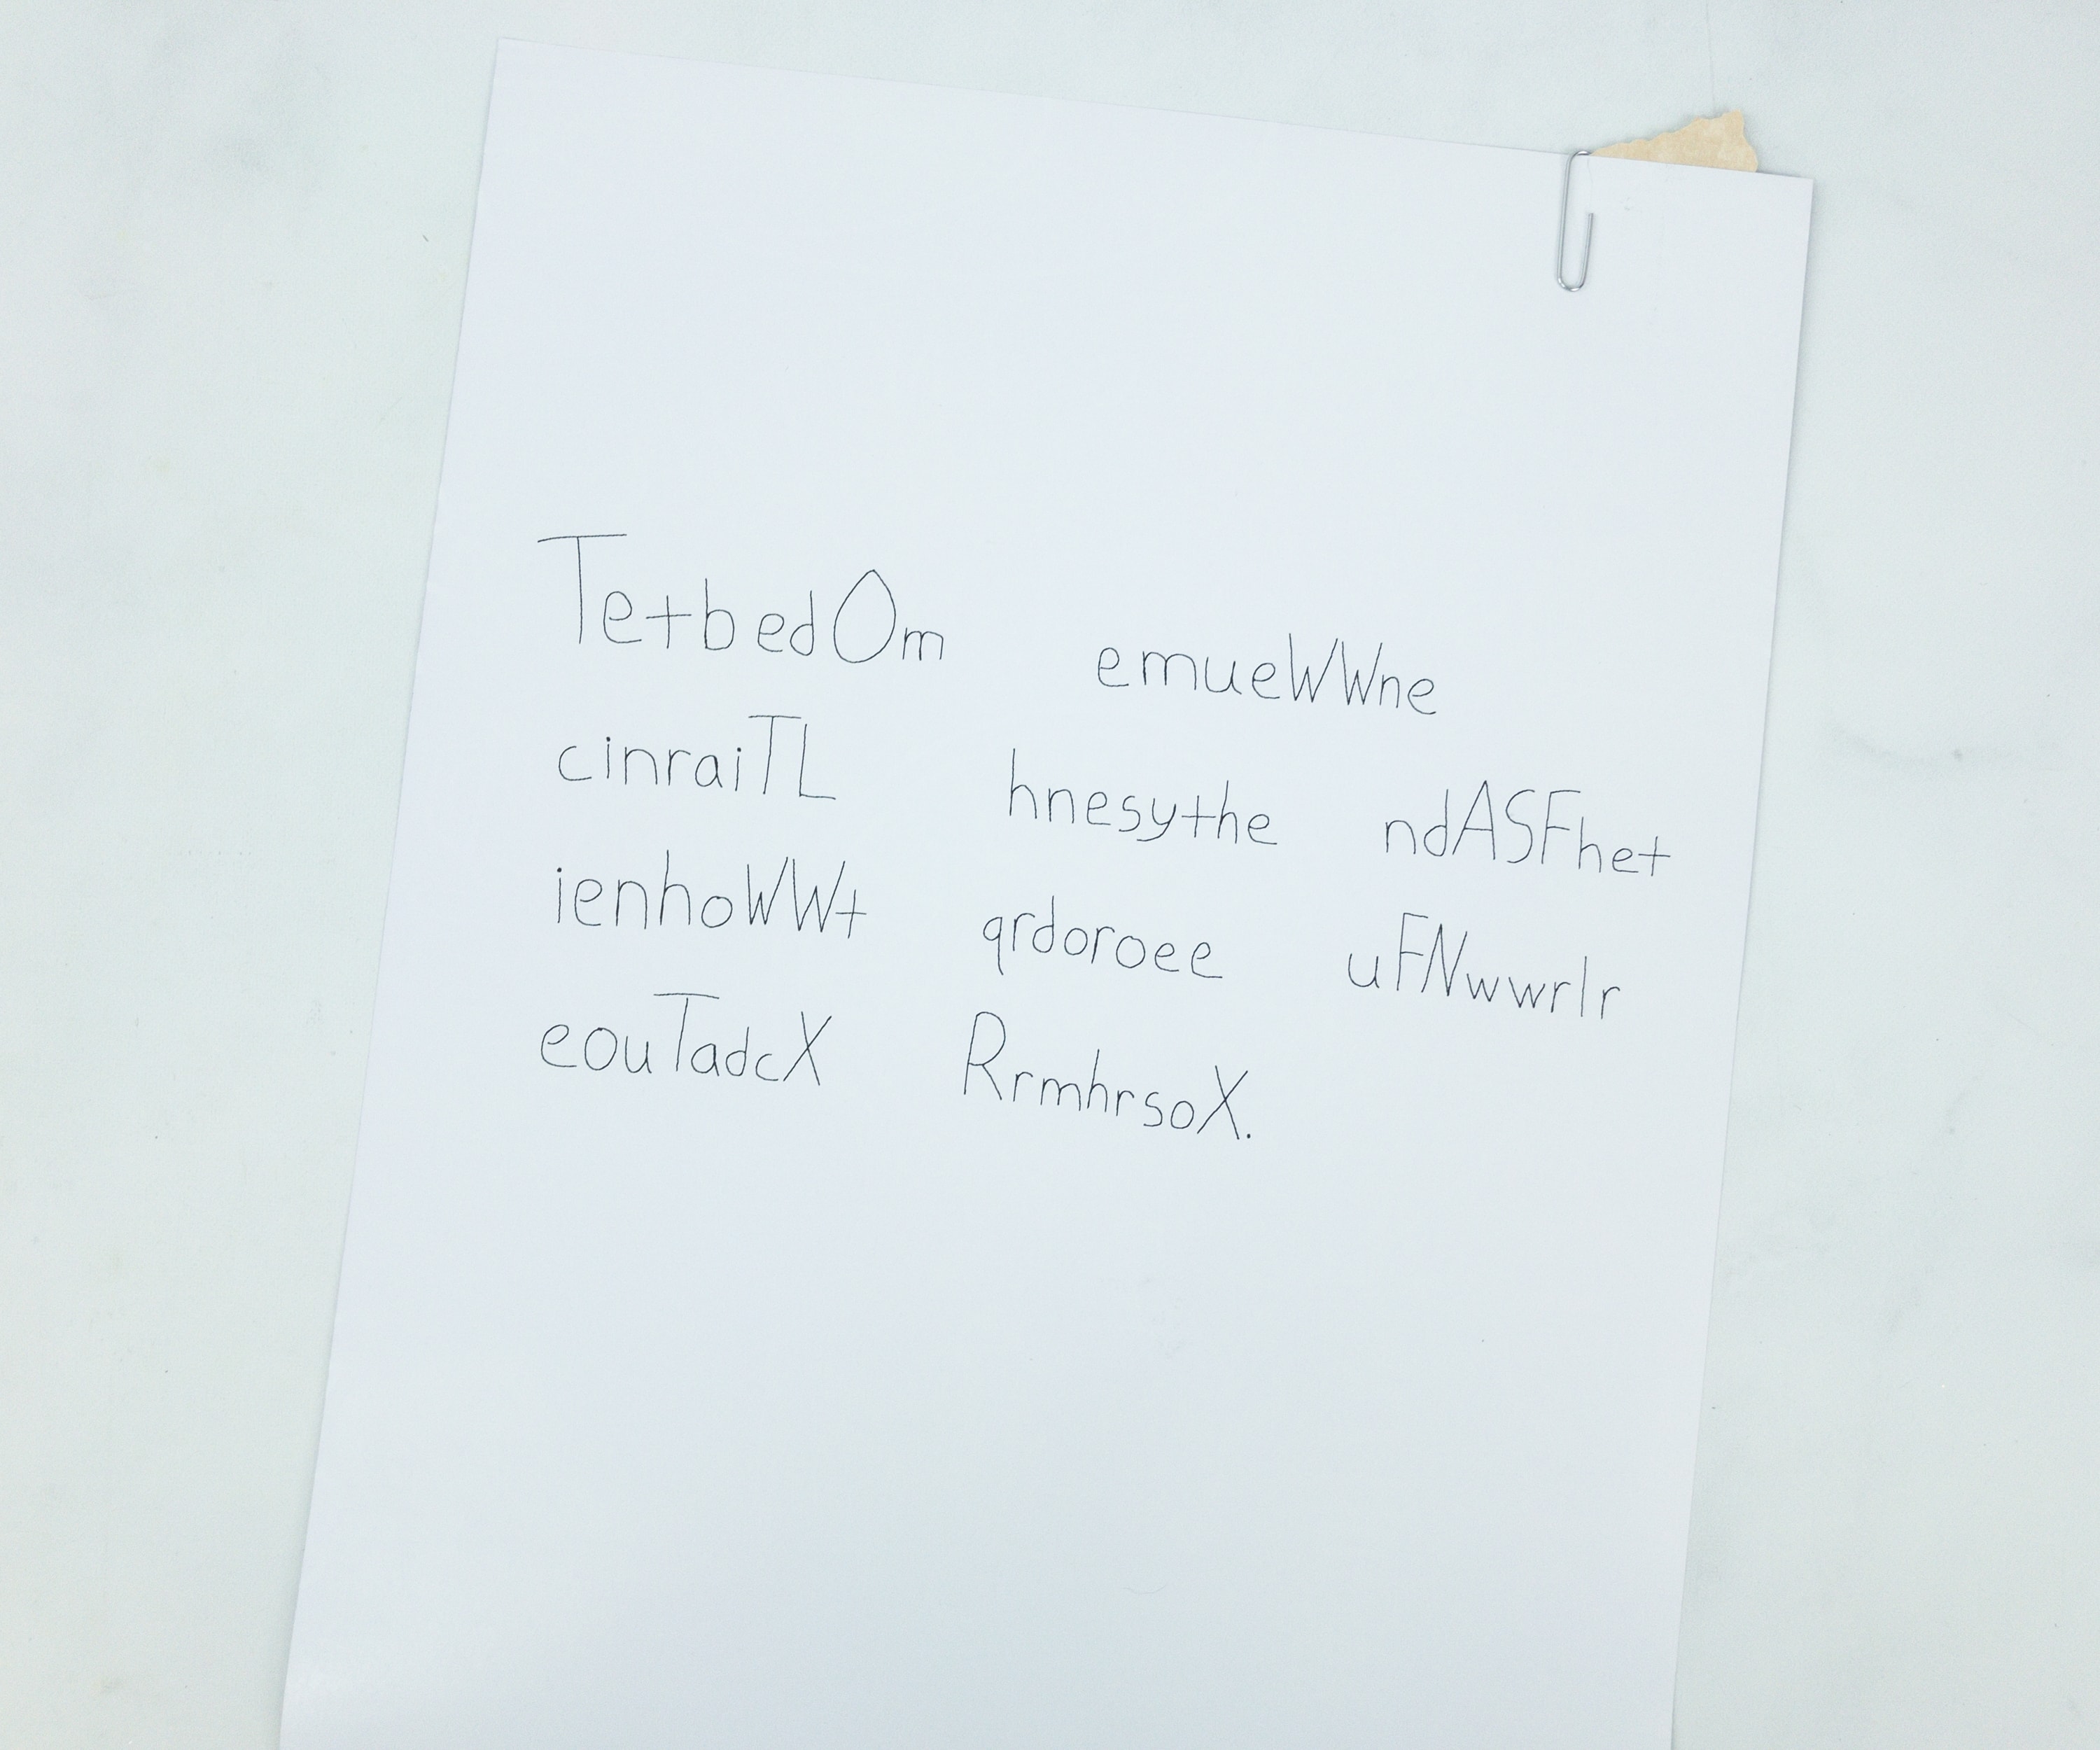 TetbedOm emueWWne
cinraiTL hnesythe ndASFhet
ienhoWWt qrdoroee uFNwwrlr
eouTadcX RrmhrsoX.